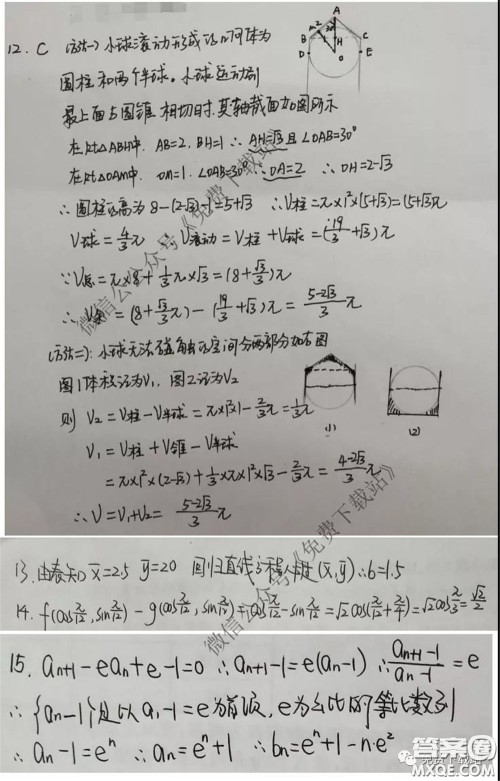 12. C (方法一) 小球滚动形成的几何体为
圆柱和两个半球。小球运动到
最上面与圆锥相切时,其轴截面如图所示
在Rt△ABH中. AB=2, BH=1 ∴ AH=√3 且 ∠OAB=30°
在Rt△OAM中. OM=1. ∠OAB=30° ∴ OA=2 ∴ OH=2-√3
∴ 圆柱的高为 8-(2-√3)-1=5+√3 ∴ V柱=π×1²×(5+√3)=(5+√3)π
V球=4/3π ∴ V滚动=V柱+V球=(19/3+√3)π
∵ V总=π×8+1/3π×√3=(8+√3/3)π
∴ =(8+√3/3π)-(19/3+√3)π=(5-2√3)/3π
(方法二): 小球无法碰触的空间分两部分如右图
图1体积记为V₁, 图2记为V₂
则 V₂=V柱-V半球=π×1²×1-2/3π=1/3π
V₁=V柱+V锥-V半球
=π×1²×(2-√3)+1/3×π×1²×√3-2/3π=(4-2√3)/3π
∴ V=V₁+V₂=(5-2√3)/3π
A
B
C
D
E
H
O
M
(1)
(2)
13. 由表知 x̄=2.5 ȳ=20 回归直线方程过(x̄,ȳ) ∴ b=1.5
14. f(cosπ/12, sinπ/12)-g(cosπ/12, sinπ/12)=cosπ/12-sinπ/12=√2cos(π/12+π/4)=√2cosπ/3=√2/2
15. aₙ₊₁-eaₙ+e-1=0 ∴ aₙ₊₁-1=e(aₙ-1) ∴ (aₙ₊₁-1)/(aₙ-1)=e
∴ {aₙ-1}是以a₁-1=e为首项, e为公比的等比数列
∴ aₙ-1=eⁿ ∴ aₙ=eⁿ+1 ∴ bₙ=eⁿ+1-n·e²
微信公众号《免费下载站》
微信公众号《免费下载站》
答案圈
MXQE.COM